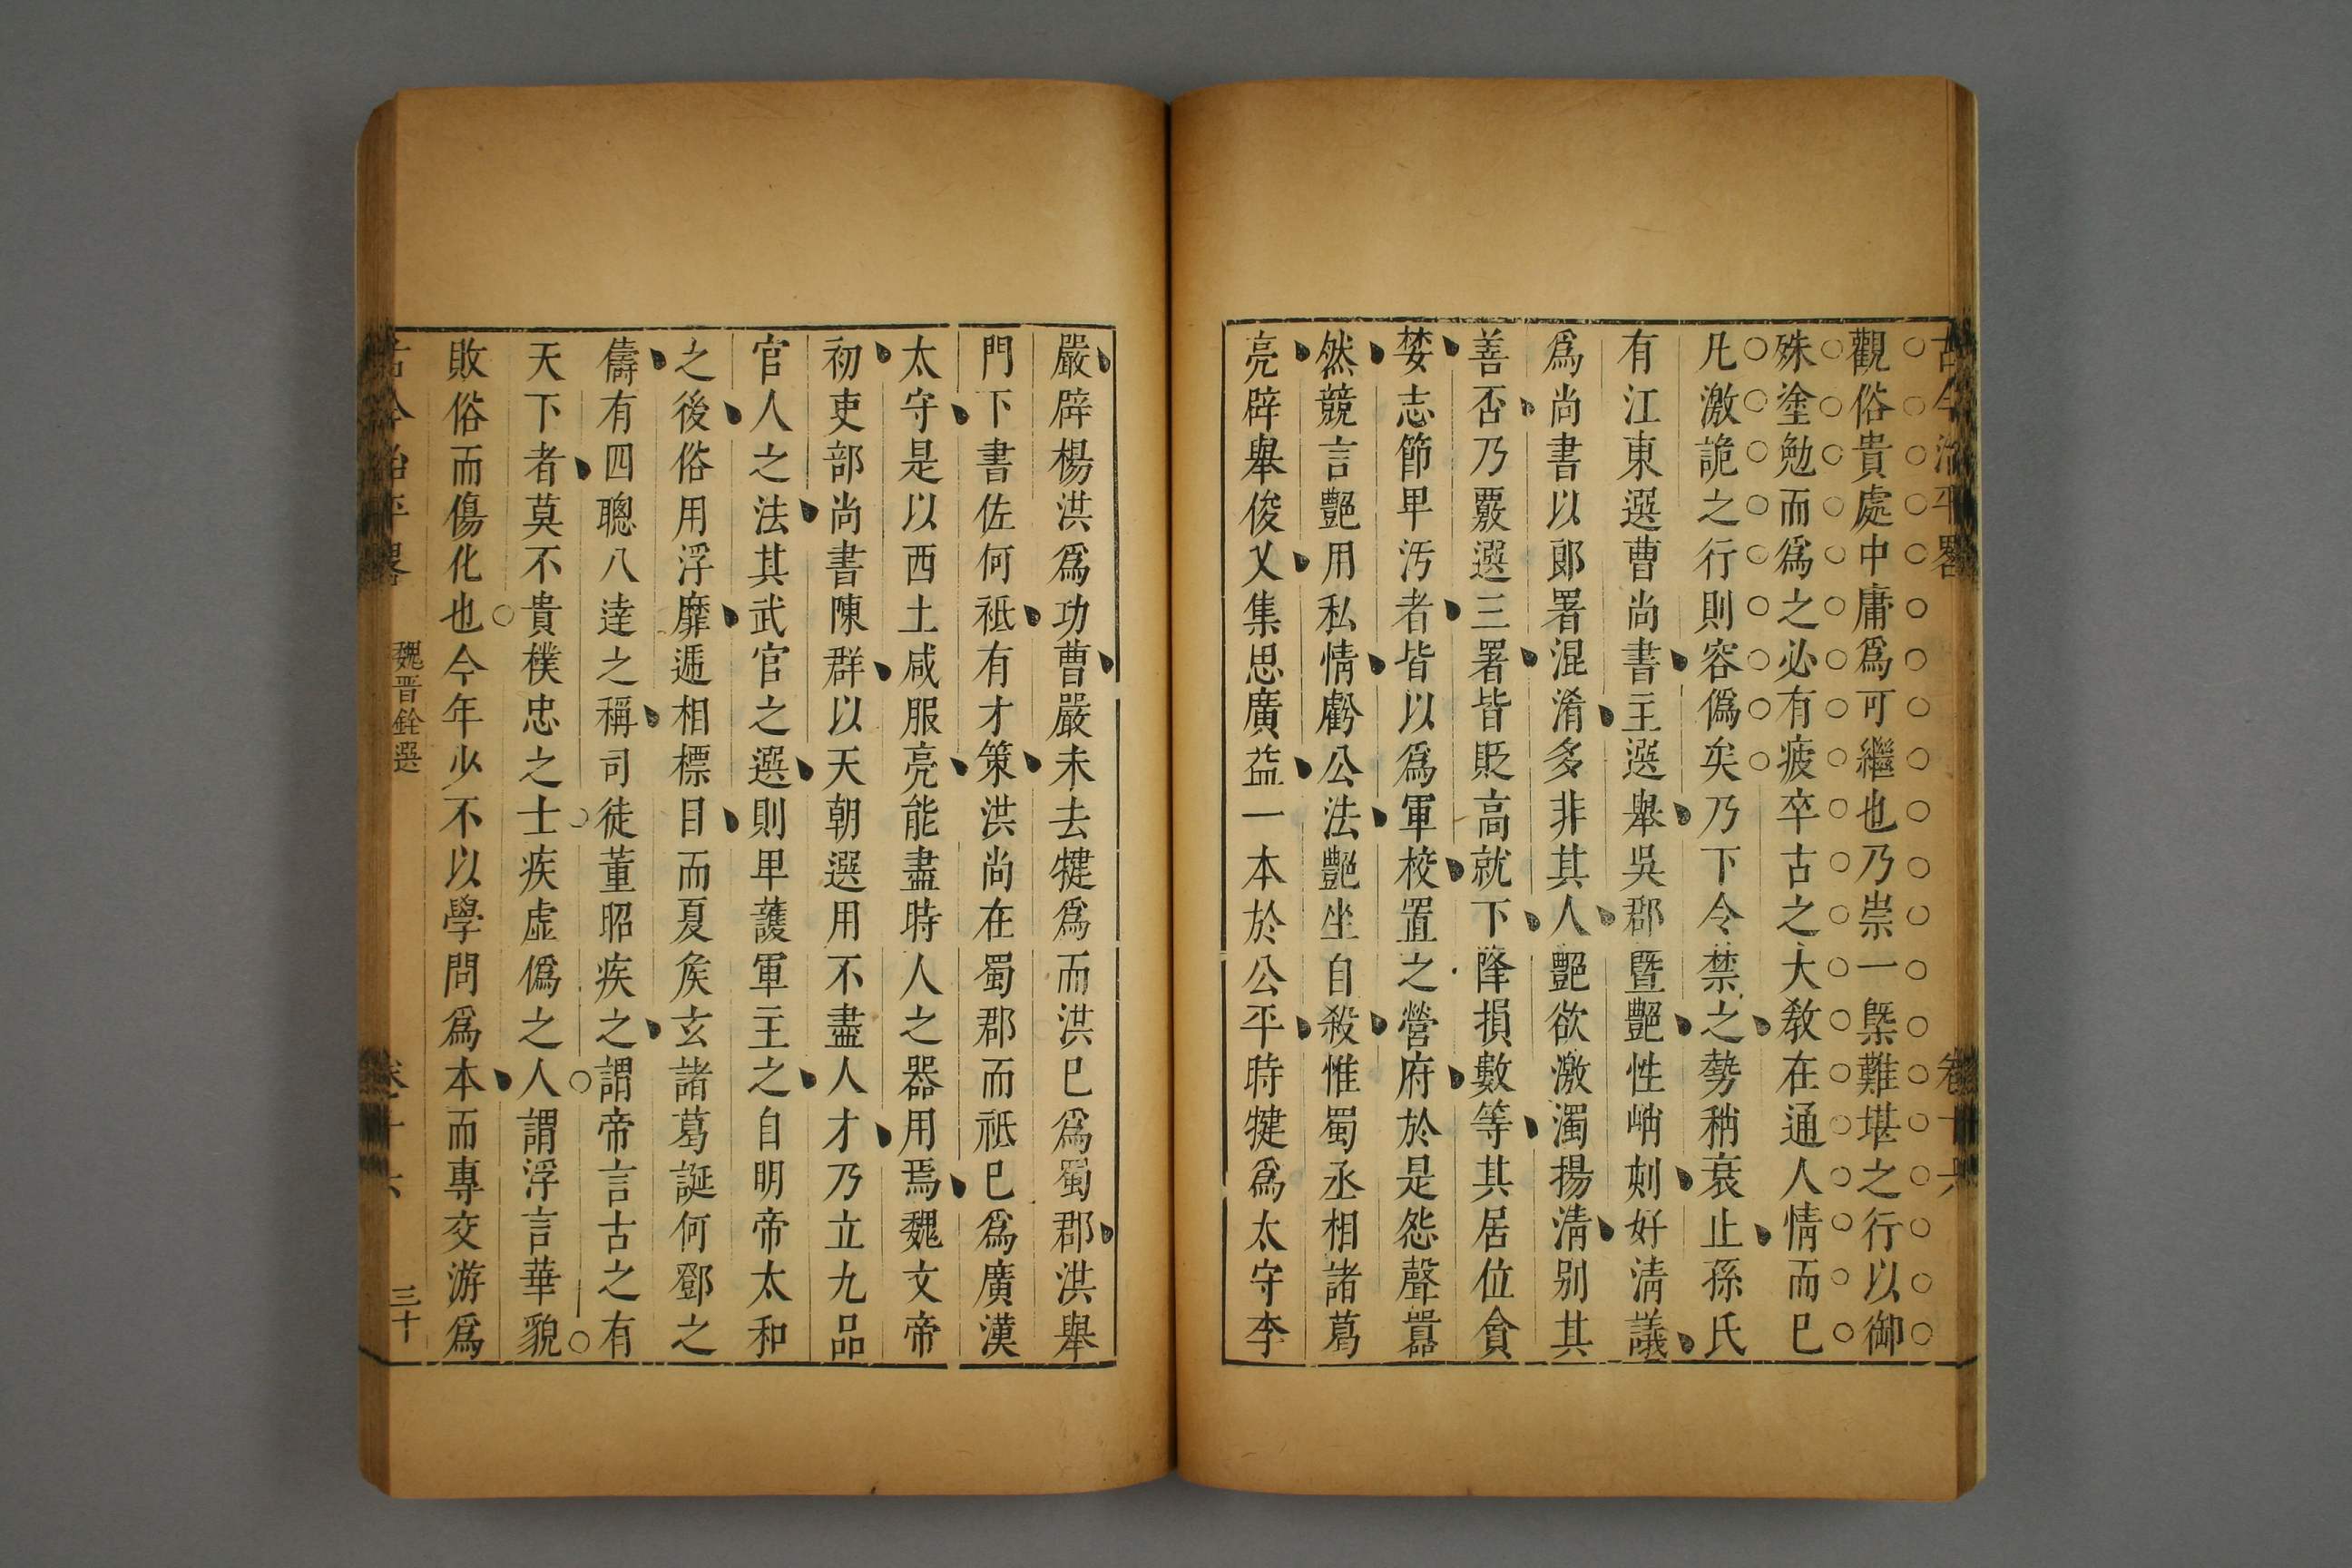 古今治平畧 卷十六
觀俗貴處中庸爲可繼也乃崇一槩難堪之行以御
殊塗勉而爲之必有疲卒古之大敎在通人情而已
凡激詭之行則容僞矣乃下令禁之勢稍衰止孫氏
有江東選曹尚書主選舉吳郡曁艷性峭刻好淸議
爲尚書以郞署混淆多非其人艷欲激濁揚淸别其
善否乃覈選三署皆貶高就下降損數等其居位貪
婪志節卑汚者皆以爲軍校置之營府於是怨聲囂
然競言艷用私情虧公法艷坐自殺惟蜀丞相諸葛
亮辟舉俊乂集思廣益一本於公平時犍爲太守李
嚴辟楊洪爲功曹嚴未去犍爲而洪已爲蜀郡洪舉
門下書佐何祗有才策洪尚在蜀郡而祗已爲廣漢
太守是以西土咸服亮能盡時人之器用焉魏文帝
初吏部尚書陳群以天朝選用不盡人才乃立九品
官人之法其武官之選則𤰞護軍主之自明帝太和
之後俗用浮靡遞相標目而夏矦玄諸葛誕何鄧之
儔有四聰八達之稱司徒董昭疾之謂帝言古之有
天下者莫不貴樸忠之士疾虛僞之人謂浮言華貌
敗俗而傷化也今年少不以學問爲本而專交游爲
古今治平畧 魏晋銓選 卷十六 三十